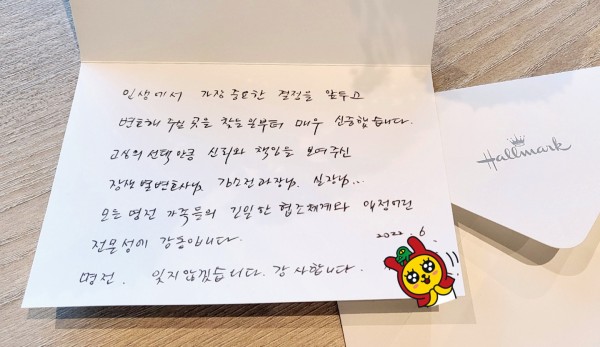 인생에서 가장 중요한 결정을 앞두고
변호해 주실 곳을 찾는 일부터 매우 신중했습니다.
고심의 선택만큼 신뢰와 책임을 보여주신
장샛별변호사님, 김소진과장님, 실장님...
모든 명전 가족들의 긴밀한 협조체계와 애정어린
전문성에 감동입니다.
2022. 6
명전. 잊지 않겠습니다. 감사합니다.
Hallmark